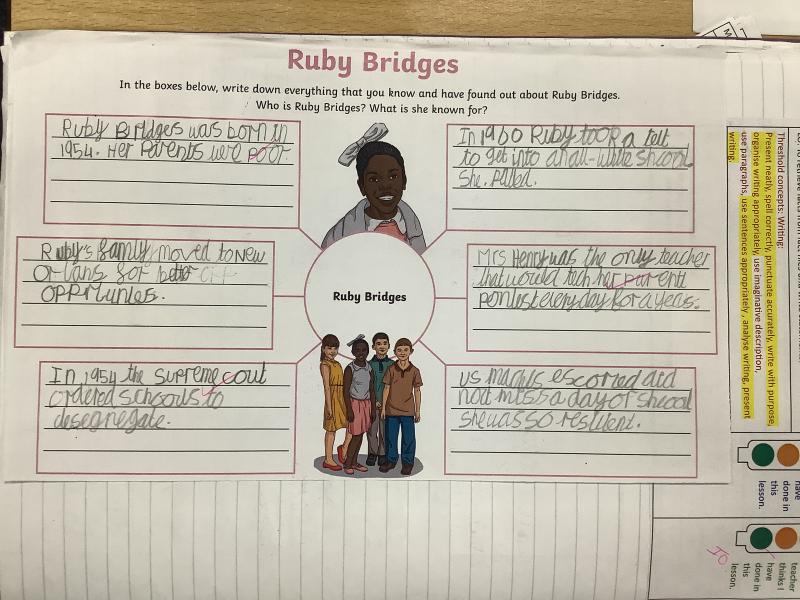 Ruby Bridges
In the boxes below, write down everything that you know and have found out about Ruby Bridges.
Who is Ruby Bridges? What is she known for?
Ruby Bridges was born in
1954. Her Parents were poor.
In 1960 Ruby took a test
to get into a hall-white shcool
She. Passed.
Ruby's family moved to New
Orlans for better opp
OPPrtunies.
Mrs Henry was the only teacher
that would tech her parents
every day for a years.
Ruby Bridges
In 1954 the Supreme cout
ordered schools to
desegnegate.
us escorred did
not miss a day of shcool
she was so resilient.
Threshold concepts: Writing:
Present neatly, spell correctly, punctuate accurately, write with purpose,
organise writing appropriately, use imaginative description,
use paragraphs, use sentences appropriately, analyse writing, present
writing.
have
done in
this
lesson.
teacher
thinks I
have
done in
this
lesson.